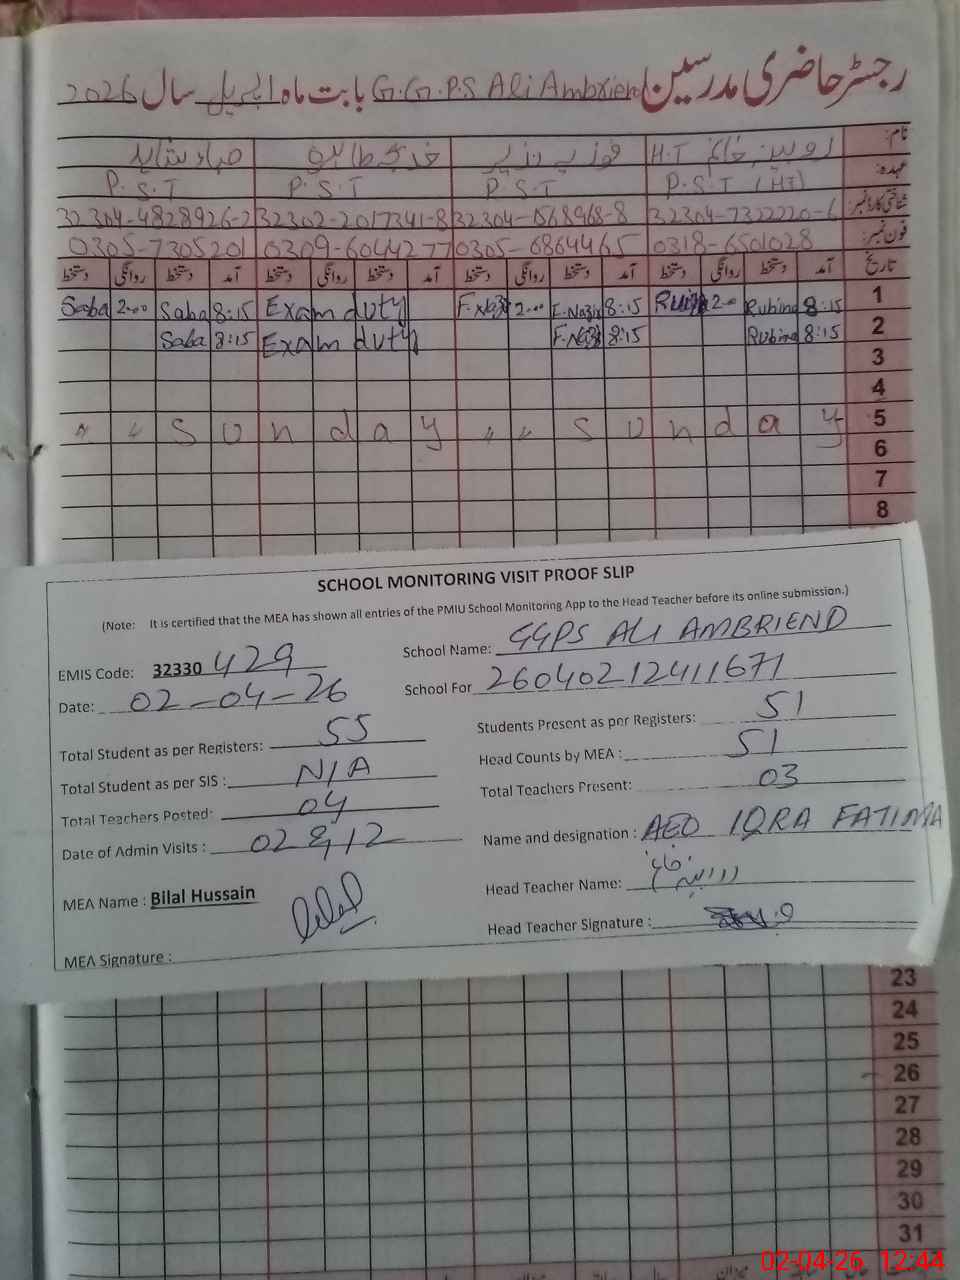 رجسٹر حاضری مدرسین G.G.P.S Ali Ambriend بابت ماہ اپریل سال 2026
نام: روبینہ خانم H.T فوزیہ نذیر خدیجہ طاہرہ صباء شاہد
عہدہ: P.S.T (HT) P.S.T P.S.T P.S.T
شناختی کارڈ نمبر: 32304-7322220-6 32304-1568968-8 32302-2017341-8 32304-4828926-2
فون نمبر: 0318-6501028 0305-6864465 0309-6044277 0305-7305201
تاریخ آمد دستخط روانگی دستخط آمد دستخط روانگی دستخط آمد دستخط روانگی دستخط آمد دستخط روانگی دستخط
Saba 2-00 Saba 8:15 Exam duty F.Nazir 2-00 F.Nazir 8:15 Rubina 2-00 Rubina 8:15 1
Saba 8:15 Exam duty F.Nazir 8:15 Rubina 8:15 2
3
4
" " S u n d a y " " S u n d a y 5
6
7
8
SCHOOL MONITORING VISIT PROOF SLIP
(Note: It is certified that the MEA has shown all entries of the PMIU School Monitoring App to the Head Teacher before its online submission.)
EMIS Code: 32330 429 School Name: GGPS ALI AMBRIEND
Date: 02-04-26 School For 26040212411671
Total Student as per Registers: 55 Students Present as per Registers: 51
Total Student as per SIS : N/A Head Counts by MEA : 51
Total Teachers Posted: 04 Total Teachers Present: 03
Date of Admin Visits : 02 & 12 Name and designation : AEO IQRA FATIMA
MEA Name : Bilal Hussain Head Teacher Name: روبینہ خانم
MEA Signature : Bilal Head Teacher Signature :
23
24
25
26
27
28
29
30
31
02-04-26 12:44